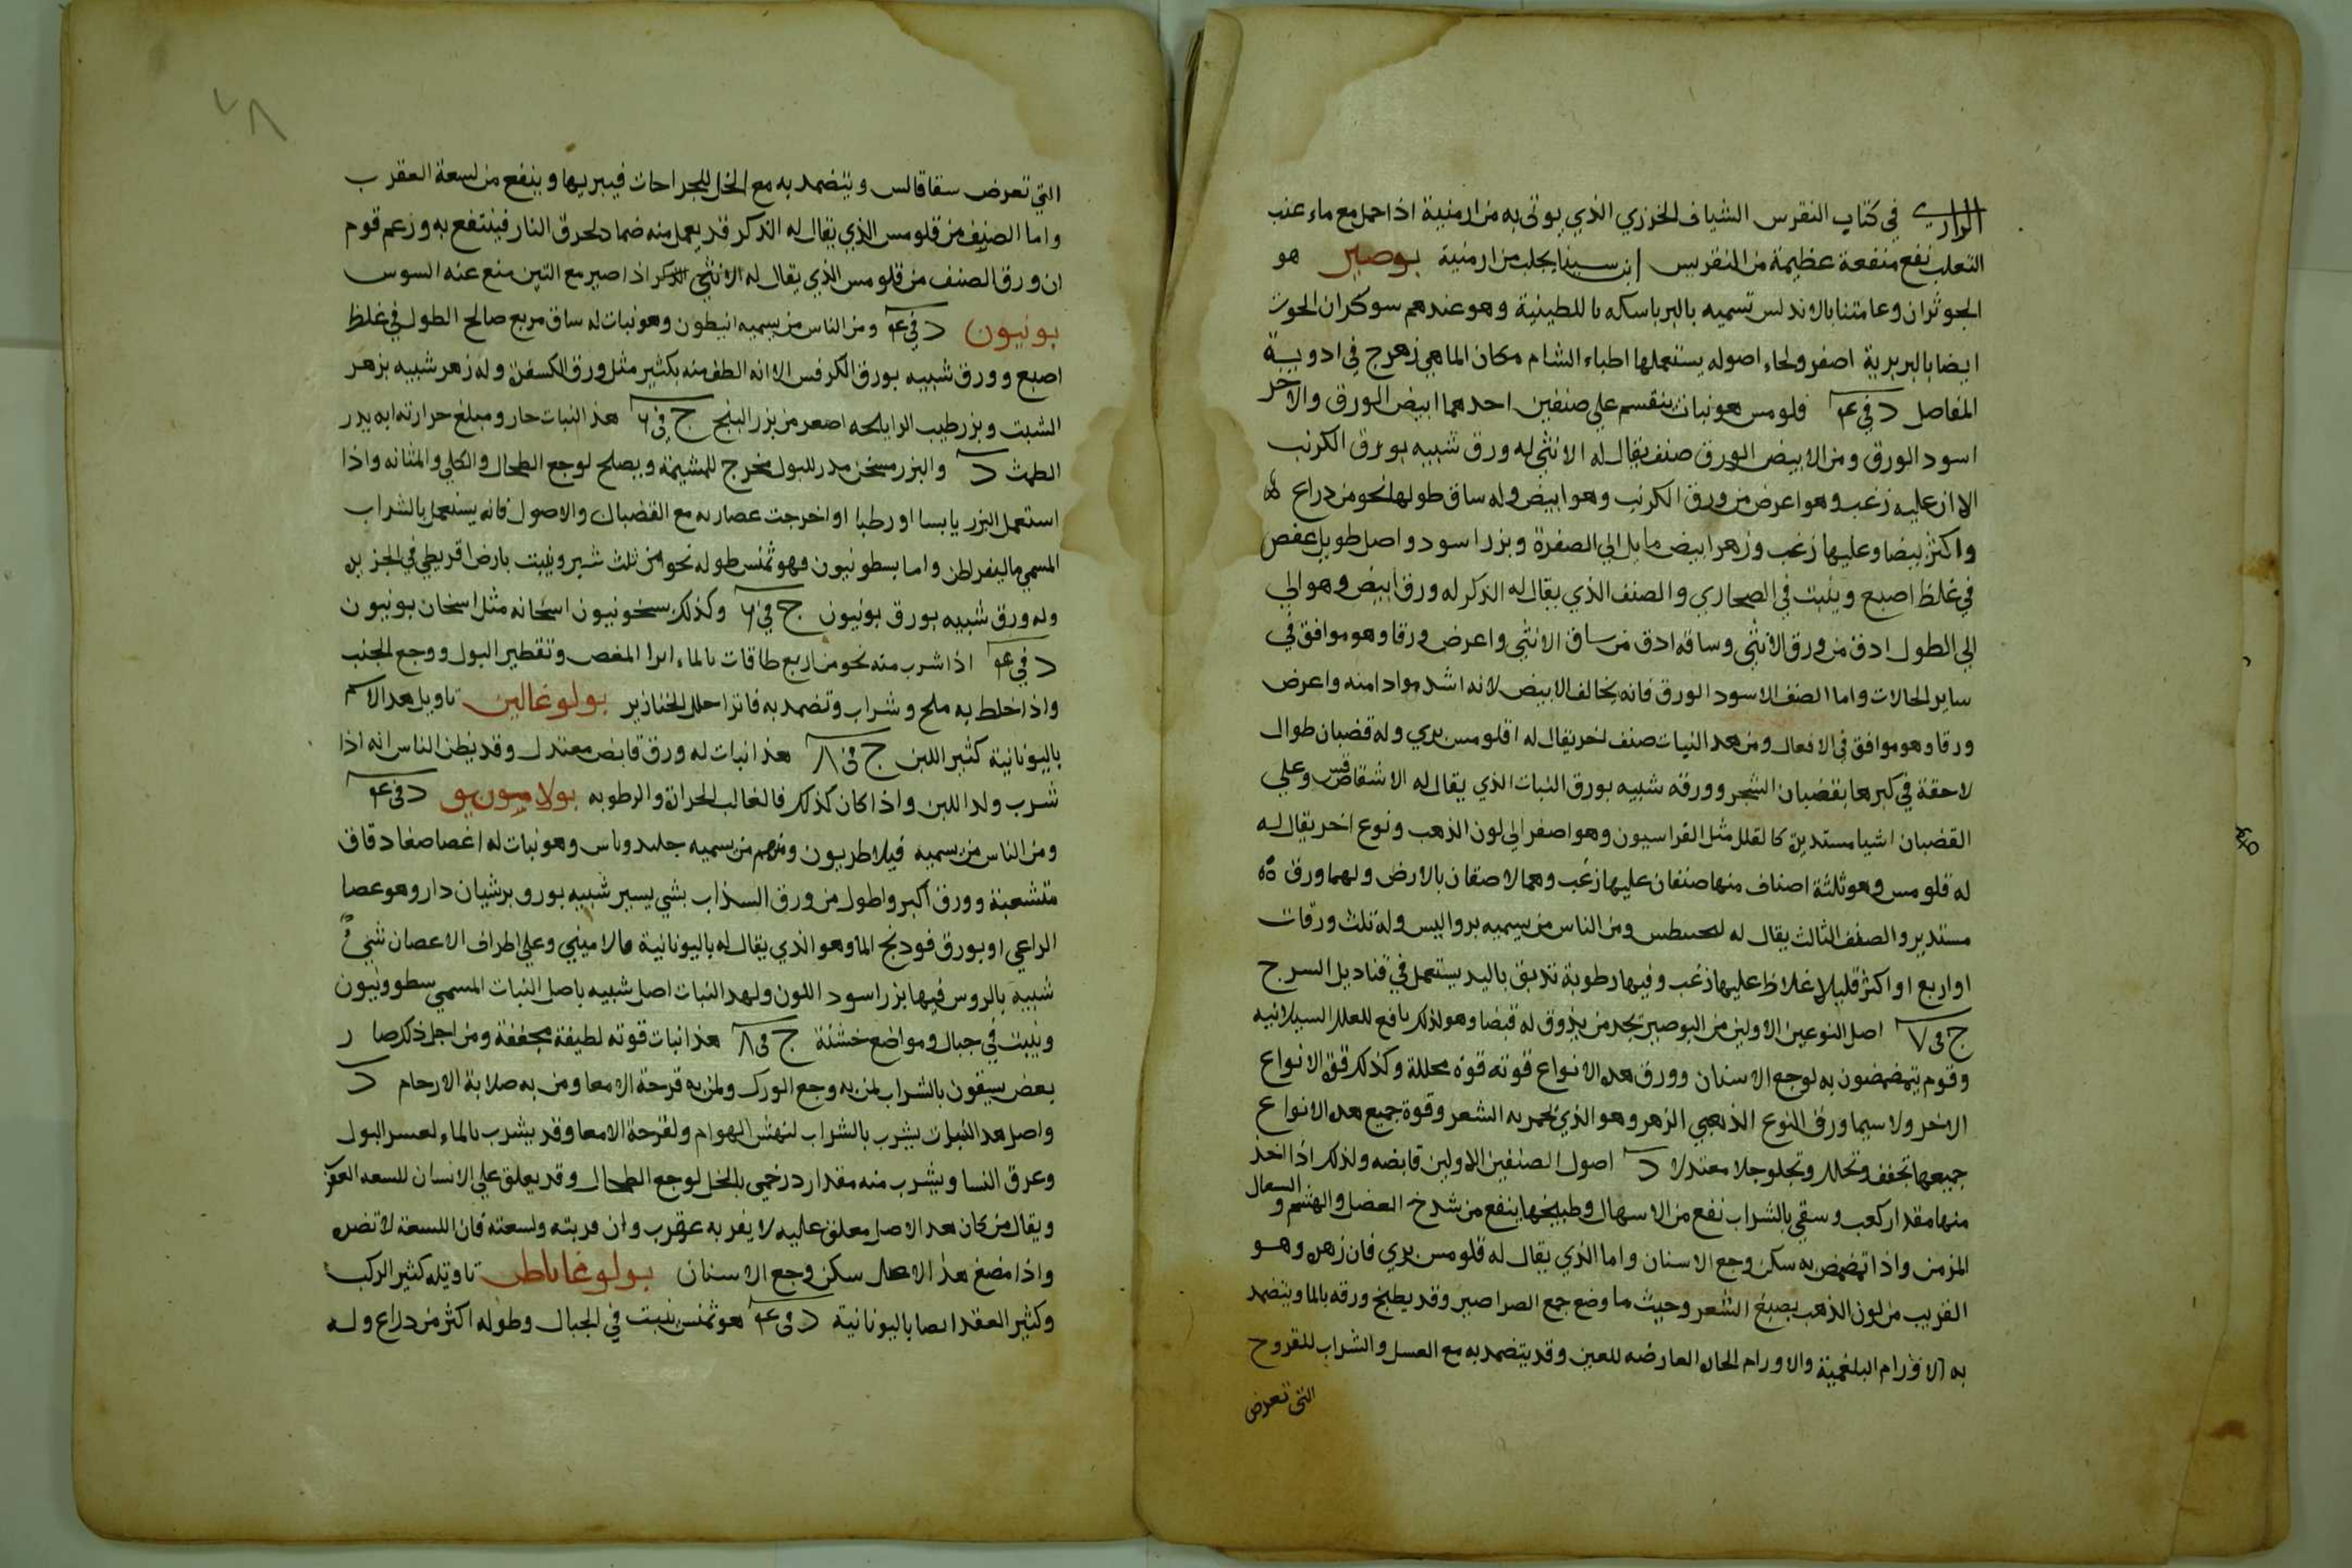 الرازي في كتاب النقرس الشياف الخزري الذي يوتى به من ارمنية اذا حمل مع ماء عنب
الثعلب نفع منفعة عظيمة من النقريس ابن سينا يجلب من ارمنية بوصير هو
الجوثران وعامتنا بالاندلس تسميه بالبرباسكه باللطينية وهو عندهم سوكران الحوت
ايضا بالبربرية اصفر ولحاء اصوله يستعملها اطباء الشام مكان الماهي زهرج في ادوية
المفاصل د في ٤ فلومس هو نبات ينقسم على صنفين احدهما ابيض الورق والاخر
اسود الورق ومن الابيض الورق صنف يقال له الانثى له ورق شبيه بورق الكرنب
الا ان عليه زغب وهو اعرض من ورق الكرنب وهو ابيض وله ساق طولها نحو من دراع
واكثر بيضا وعليها زغب وزهر ابيض مايل الي الصفرة وبزر اسود واصل طويل عفص
في غلظ اصبع وينبت في الصحاري والصنف الذي يقال له الذكر له ورق ابيض وهو الي
الى الطول ادق من ورق الانثى وساقه ادق من ساق الانثى واعرض ورقا وهو موافق في
ساير الحالات واما الصنف الاسود الورق فانه يخالف الابيض لانه اشد سوادا منه واعرض
ورقا وهو موافق في الافعال ومن هدا النبات صنف اخر يقال له اقلومس بري وله قضبان طوال
لاحقة في كبرها بقضبان الشجر وورقه شبيه بورق النبات الذي يقال له الاشفاقس وعلى
القضبان اشيا مستديرة كالفلك مثل الفراسيون وهو اصفر الى لون الذهب ونوع اخر يقال له
له فلومس وهو ثلثة اصناف منها صنفان عليها زغب وهما لاصقان بالارض ولهما ورق
مستدير والصنف الثالث يقال له ومن الناس من يسميه برواليس وله ثلث ورقات
او اربع او اكثر قليلا غلاظ عليها زغب وفيها رطوبة تدبق باليد يستعمل في قناديل السرج
ج في ٧ اصل النوعين الاولين من البوصير يجد من يذوق له قبضا وهو لذلك نافع للعلل السيلانيه
وقوم يتمضمضون به لوجع الاسنان وورق هده الانواع قوته قوة محللة وكذلك قوة الانواع
الاخر ولا سيما ورق النوع الذهبي الزهر وهو الذي يحمر به الشعر وقوة جميع هده الانواع
جميعها تجفف وتحلل وتجلو جلا معتدلا د اصول الصنفين الاولين قابضه ولذلك اذا اخذ
منها مقدار كعب وسقي بالشراب نفع من الاسهال وطبيخها ينفع من شدخ العضل والهتم والسعال
المزمن واذا تمضمض به سكن وجع الاسنان واما الذي يقال له فلومس بري فان زهره وهو
القريب من لون الذهب يصبغ الشعر وحيث ما وضع جمع الصراصير وقد يطبخ ورقه بالما ويتضمد
به الاورام البلغمية والاورام الحاره العارضه للعين وقد يتضمد به مع العسل والشراب للقروح
التي تعرض
٤٨
التي تعرض سقاقالس ويتضمد به مع الخل للجراحات فيبريها وينفع من لسعة العقرب
واما الصنف من فلومس الذي يقال له الذكر قد يعمل منه ضماد لحرق النار فينتفع به وزعم قوم
ان ورق الصنف من فلومس الذي يقال له الانثى اذا صير مع التين منع عنه السوس
بونيون د في ٤ ومن الناس من يسميه انيطون وهو نبات له ساق مربع صالح الطول في غلظ
اصبع وورق شبيه بورق الكرفس الا انه الطف منه بكثير مثل ورق الكسفرة وله زهر شبيه بزهر
الشبت وبزر طيب الرايحه اصغر من بزر البنج ج في ٦ هذا النبات حار ومبلغ حرارته انه يدر
الطمث د والبزر مسخن مدر للبول مخرج للمشيمة ويصلح لوجع الطحال والكلى والمثانه واذا
استعمل البزر يابسا او رطبا او اخرجت عصارته مع القضبان والاصول فانه يستعمل بالشراب
المسمي ماليقراطن واما بسطونيون فهو ثمنس طوله نحو من ثلث شبر وينبت بارض اقريطي في الجزيره
وله ورق شبيه بورق بونيون ج في ٦ وكذلك اسخانه مثل اسخان بونيون
د في ٤ اذا شرب منه نحو من اربع طاقات بالماء ابرا المغص وتقطير البول ووجع الجنب
واذا خلط به ملح وشراب وتضمد به فاترا حلل الخنازير بولوغالين تاويل هدا الاسم
باليونانية كثير اللبن ج في ٨ هذا نبات له ورق قابض معتدل وقد يظن الناس انه اذا
شرب ولد اللبن واذا كان كذلك فالغالب الحرارة والرطوبه بولامونيو د في ٤
ومن الناس من يسميه فيلاطريون ومنهم من يسميه وهو نبات له اغصا صغا دقاق
متشعبة وورق اكبر واطول من ورق السذاب بشي يسير شبيه بورق برشيان دارو وهو عصا
الراعي او بورق فودنج الما وهو الذي يقال له باليونانية قالامينى وعلى اطراف الاغصان شي
شبيه بالروس فيها بزر اسود اللون ولهدا النبات اصل شبيه باصل النبات المسمي سطروثيون
وينبت في جبال ومواضع خشنة ج في ٨ هذا نبات قوته لطيفة مجففة ومن اجل ذلك صار
بعض يسقون بالشراب لمن به وجع الورك ولمن به قرحة الامعا ومن به صلابة الارحام د
واصل هدا النبات يشرب بالشراب لنهش الهوام ولقرحة الامعا وقد يشرب بالماء لعسر البول
وعرق النسا ويشرب منه مقدار درخمي بالخل لوجع الطحال وقد يعلق على الانسان للسعه العقرب
ويقال من كان هدا الاصل معلق عليه لا يقربه عقرب وان قربته ولسعته فان اللسعة لا تضره
واذا مضغ هذا الاصل سكن وجع الاسنان بولوغاناطن تاويله كثير الركب
وكثير العقد ايضا باليونانية د في ٤ هو ثمنس ينبت في الجبال وطوله اكثر من دراع وله